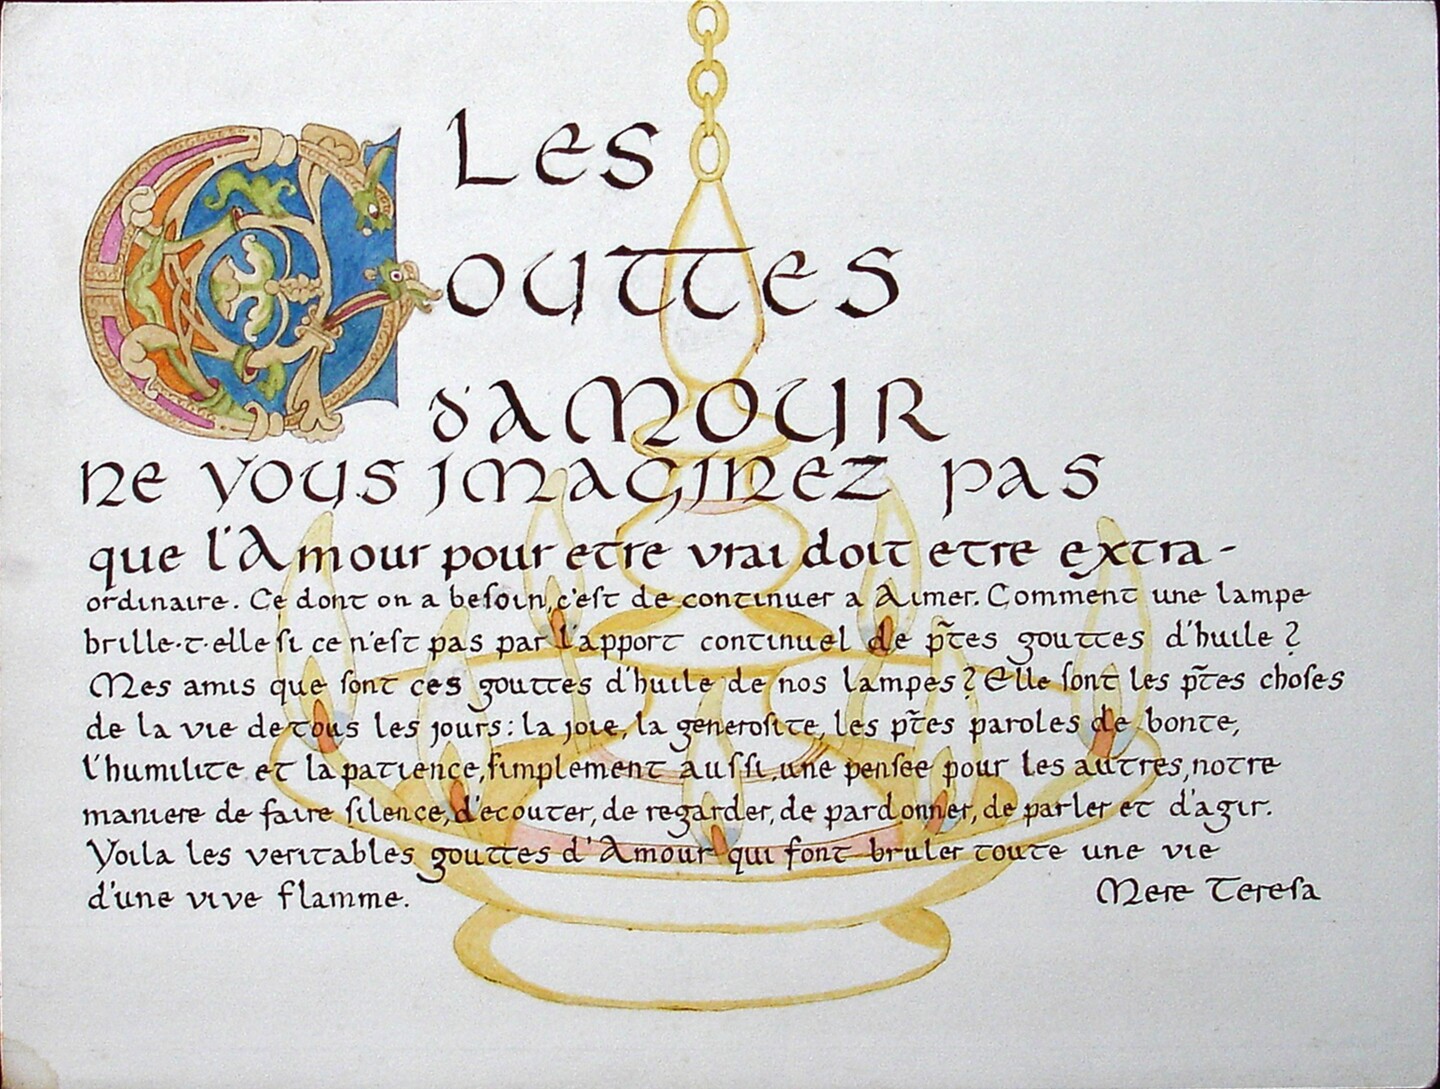 Les
Gouttes
d'Amour
ne vous imaginez pas
que l'Amour pour etre vrai doit etre extra-
ordinaire. Ce dont on a beſoin, c'eſt de continuer a Aimer. Comment une lampe
brille-t-elle ſi ce n'eſt pas par l'apport continuel de p̃tes gouttes d'huile ?
Mes amis que ſont ces gouttes d'huile de nos lampes ? Elle ſont les p̃tes choſes
de la vie de tous les jours : la joie, la generoſite, les p̃tes paroles de bonte,
l'humilite et la patience, ſimplement auſſi, une penſee pour les autres, notre
maniere de faire ſilence, d'ecouter, de regarder, de pardonner, de parler et d'agir.
Voila les veritables gouttes d'Amour qui font bruler toute une vie
d'une vive flamme.
Mere Tereſa